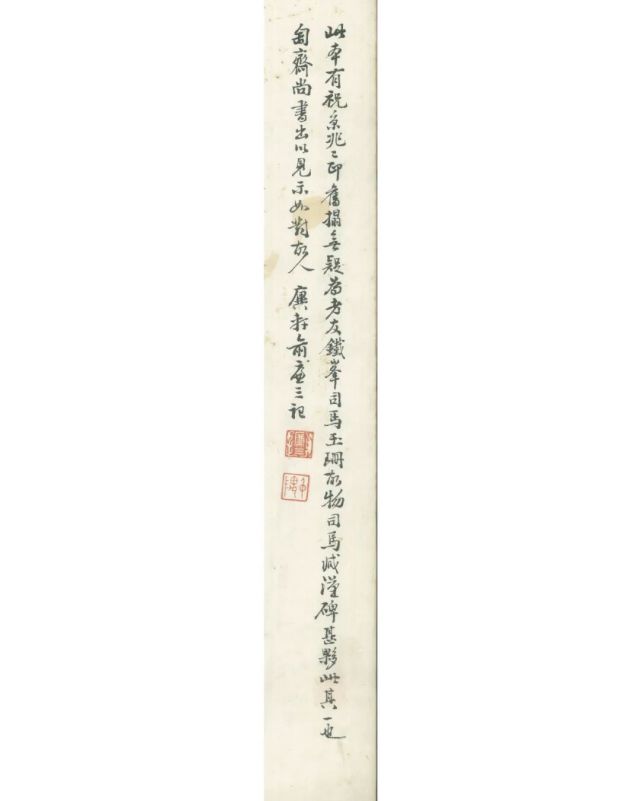 此本有祝京兆印舊搨無疑為老友鐵峯司馬玉珊故物司馬臧漢碑甚夥此其一也
匋齋尚書出以見示如對故人 廙軒俞廉三記